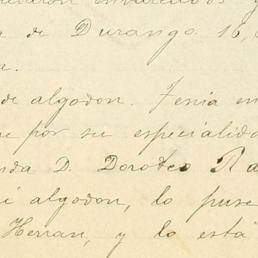 de Durango 16,
a.
de algodon. Tenia en
e por su especialida
nda D. Doroteo Ra
i algodon, lo puse
Herran, y lo está